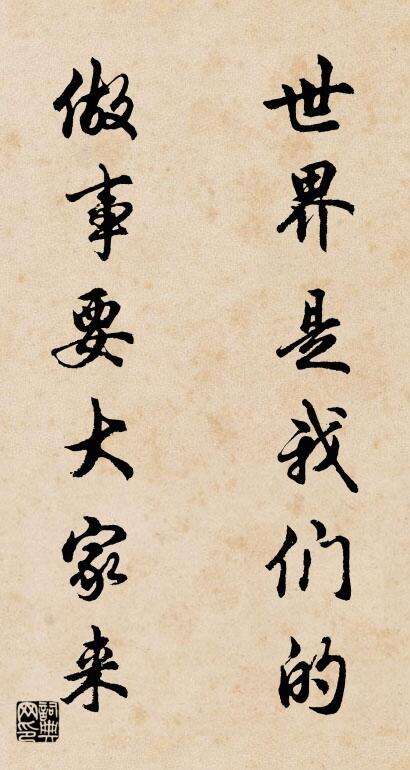 世界是我们的
做事要大家来
詞典网印